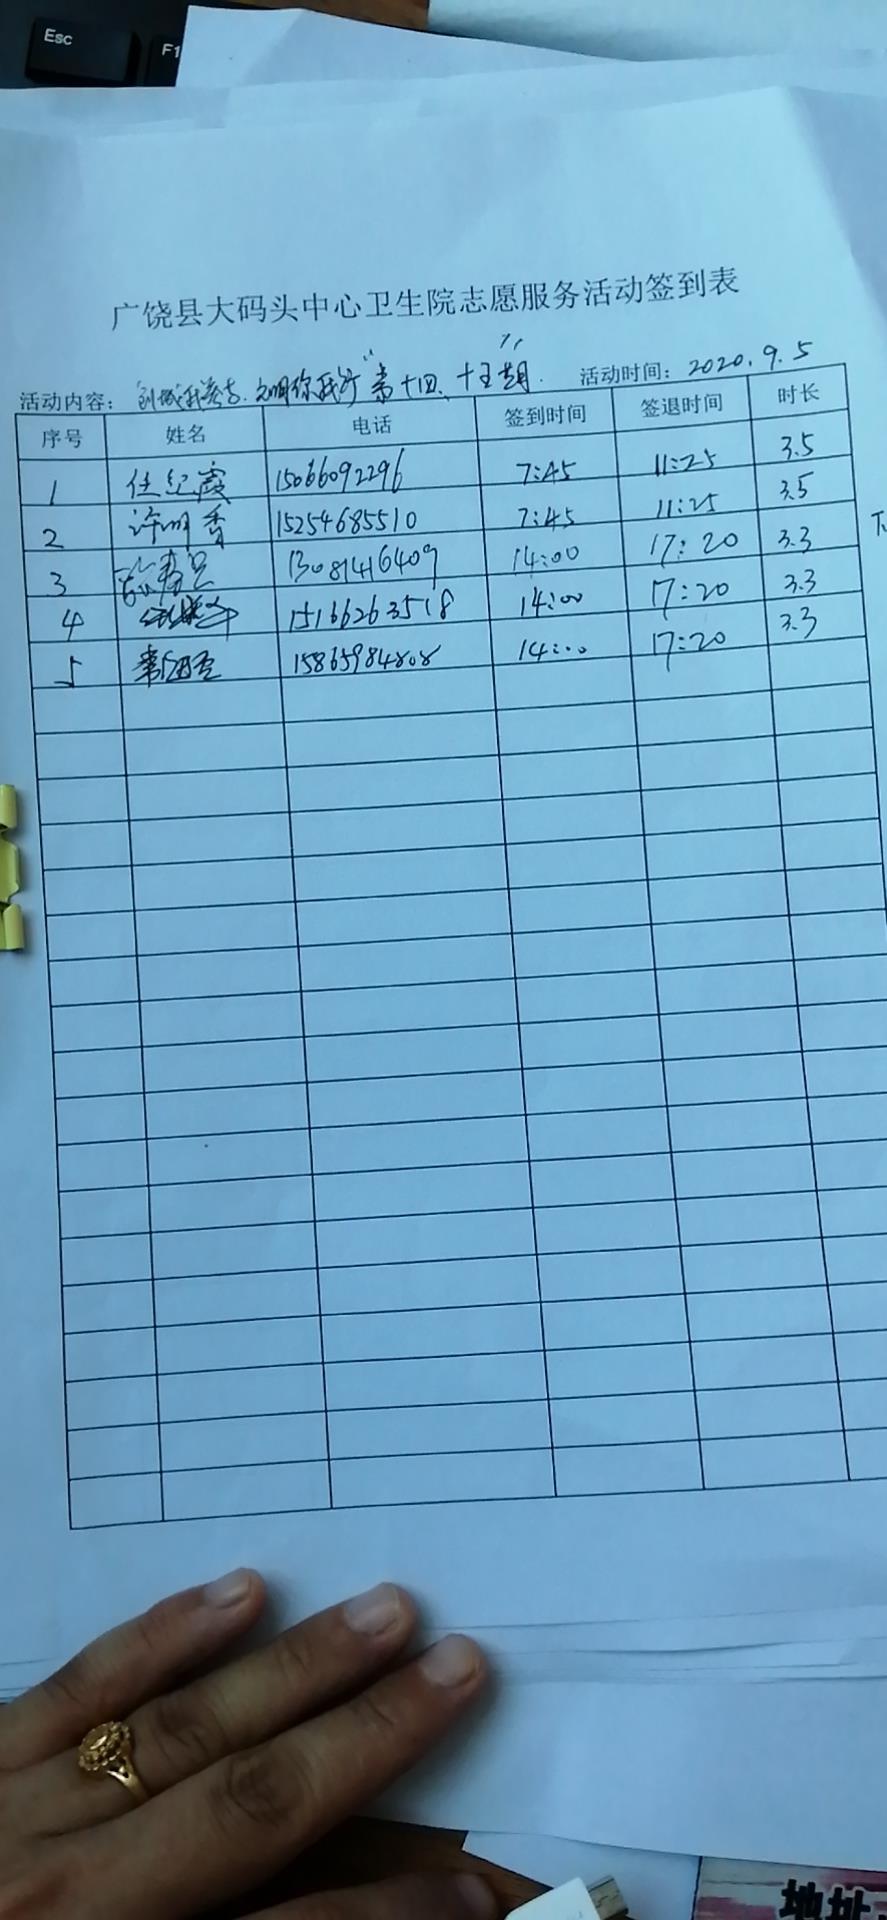 Esc F1
广饶县大码头中心卫生院志愿服务活动签到表
活动内容： 第十四、十五期 活动时间：2020.9.5
序号 姓名 电话 签到时间 签退时间 时长
1 任纪霞 15066092296 7:45 11:25 3.5
2 许明香 15254685510 7:45 11:25 3.5
3 13081416409 14:00 17:20 3.3
4 15166263518 14:00 17:20 3.3
5 15865984808 14:00 17:20 3.3
地址